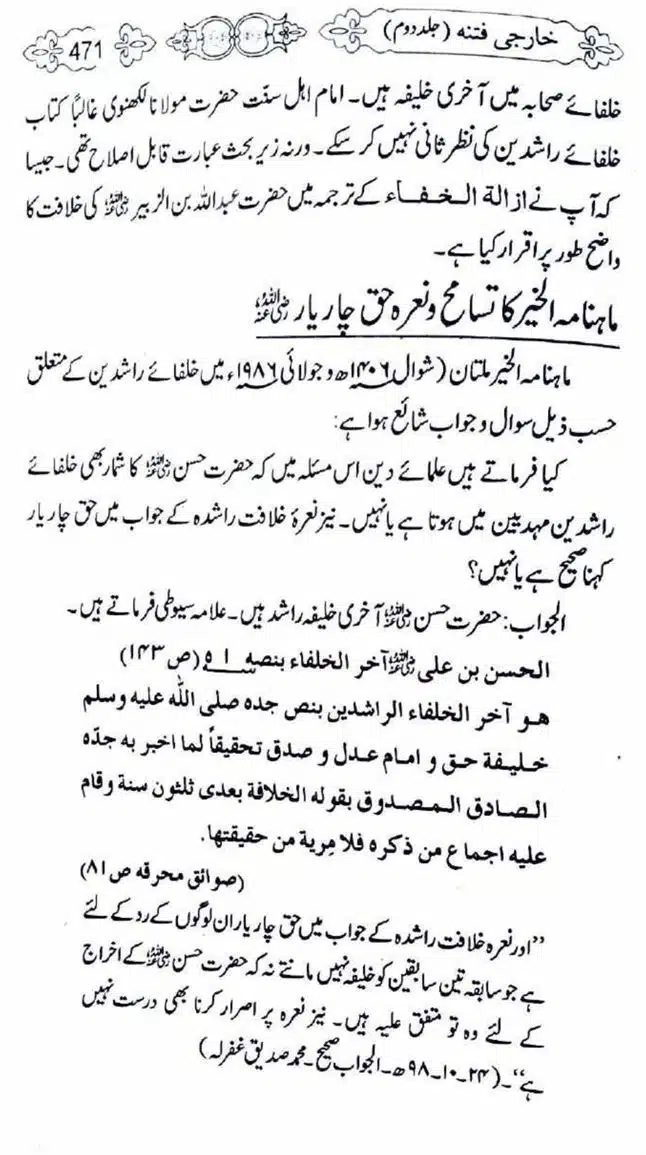 خارجی فتنہ (جلد دوم)
471
خلفائے صحابہ میں آخری خلیفہ ہیں۔ امام اہل سنّت حضرت مولانا لکھنوی غالباً کتاب
خلفائے راشدین کی نظر ثانی نہیں کر سکے۔ ورنہ زیر بحث عبارت قابل اصلاح تھی۔ جیسا
کہ آپ نے ازالة الخفاء کے ترجمہ میں حضرت عبداللہ بن الزبیر رضی اللہ عنہ کی خلافت کا
واضح طور پر اقرار کیا ہے۔
ماہنامہ الخیر کا تسامح و نعرہ حق چار یار رضی اللہ عنہ
ماہنامہ الخیر ملتان (شوال ۱۴۰۶ھ و جولائی ۱۹۸۶ء میں خلفائے راشدین کے متعلق
حسب ذیل سوال و جواب شائع ہوا ہے:
کیا فرماتے ہیں علمائے دین اس مسئلہ میں کہ حضرت حسن رضی اللہ عنہ کا شمار بھی خلفائے
راشدین مہدیین میں ہوتا ہے یا نہیں۔ نیز نعرۂ خلافت راشدہ کے جواب میں حق چار یار
کہنا صحیح ہے یا نہیں؟
الجواب: حضرت حسن رضی اللہ عنہ آخری خلیفہ راشد ہیں۔ علامہ سیوطی فرماتے ہیں۔
الحسن بن علی رضی اللہ عنہ آخر الخلفاء بنصه ۱ ه (ص ۱۴۳)
هو آخر الخلفاء الراشدین بنص جده صلی الله علیه وسلم
خلیفة حق و امام عدل و صدق تحقیقاً لما اخبر به جدّه
الصادق المصدوق بقوله الخلافة بعدی ثلثون سنة وقام
علیه اجماع من ذکره فلا مِریة من حقیقتها.
(صوائق محرقه ص ۸۱)
”اور نعرہ خلافت راشدہ کے جواب میں حق چار یار ان لوگوں کے رد کے لئے
ہے جو سابقہ تین سابقین کو خلیفہ نہیں مانتے نہ کہ حضرت حسن رضی اللہ عنہ کے اخراج
کے لئے وہ تو متفق علیہ ہیں۔ نیز نعرہ پر اصرار کرنا بھی درست نہیں
ہے“۔ (۲۴۔۱۰۔۹۸ھ۔ الجواب صحیح۔ محمد صدیق غفرلہ)